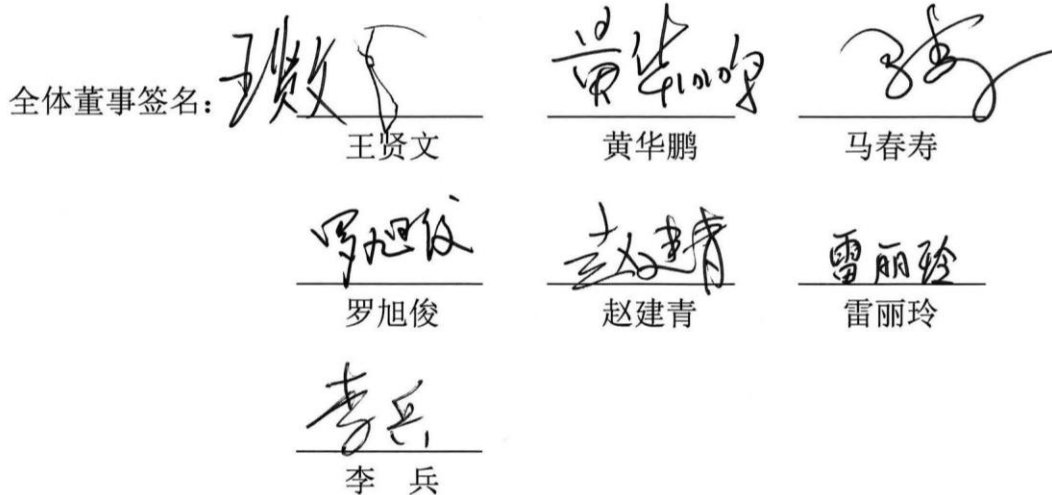 全体董事签名: 王贤文 黄华鹏 马春寿
王贤文 黄华鹏 马春寿
罗旭俊 赵建青 雷丽玲
罗旭俊 赵建青 雷丽玲
李兵
李 兵